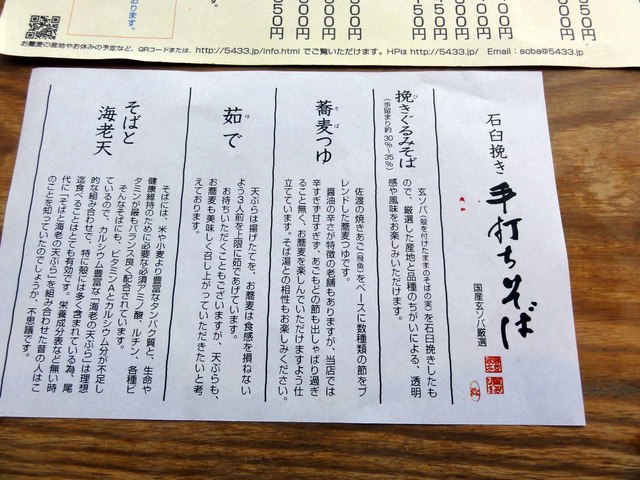 50円
00円
50円
00円
お蕎麦の産地やお休みの予定など、QRコードまたは、http://5433.jp/info.html でご覧いただけます。HPは http://5433.jp/ Email：soba@5433.jp
石臼挽き 手打ちそば
国産玄ソバ厳選
挽きぐるみそば
（歩留まり約30％～35％）
玄ソバ（殻を付けたままのそばの実）を石臼挽きしたも
ので、厳選した産地と品種のちがいによる、透明
感や風味をお楽しみいただけます。
蕎麦つゆ
佐渡の焼きあご（飛魚）をベースに数種類の節をブ
レンドした蕎麦つゆです。
醤油の辛さが特徴の老舗もありますが、当店では
辛すぎず甘すぎず、あごもどの節も出しゃばり過ぎ
ること無く、お蕎麦を楽しんでいただけますよう仕
立ています。そば湯との相性もお楽しみください。
茹で
天ぷらは揚げたてを、お蕎麦は食感を損ねない
よう3人前を上限に茹であげています。
お待ちいただくこともございますが、天ぷらも、
お蕎麦も美味しく召し上がっていただきたいと考
えております。
そばと
海老天
そばには、米や小麦より豊富なタンパク質と、生命や
健康維持のために必要な必須アミノ酸、ルチン、各種ビ
タミンが最もバランス良く配合されています。
そんなそばにも、ビタミンAとカルシウム分が不足し
ているので、カルシウム豊富な「海老の天ぷら」は理想
的な組み合わせで、特に殻には多く含まれている為、尾
迄食べることはとても有効です。栄養成分表など無い時
代に「そばと海老の天ぷら」を組み合わせた昔の人はこ
のことを知っていたのでしょうか、不思議です。